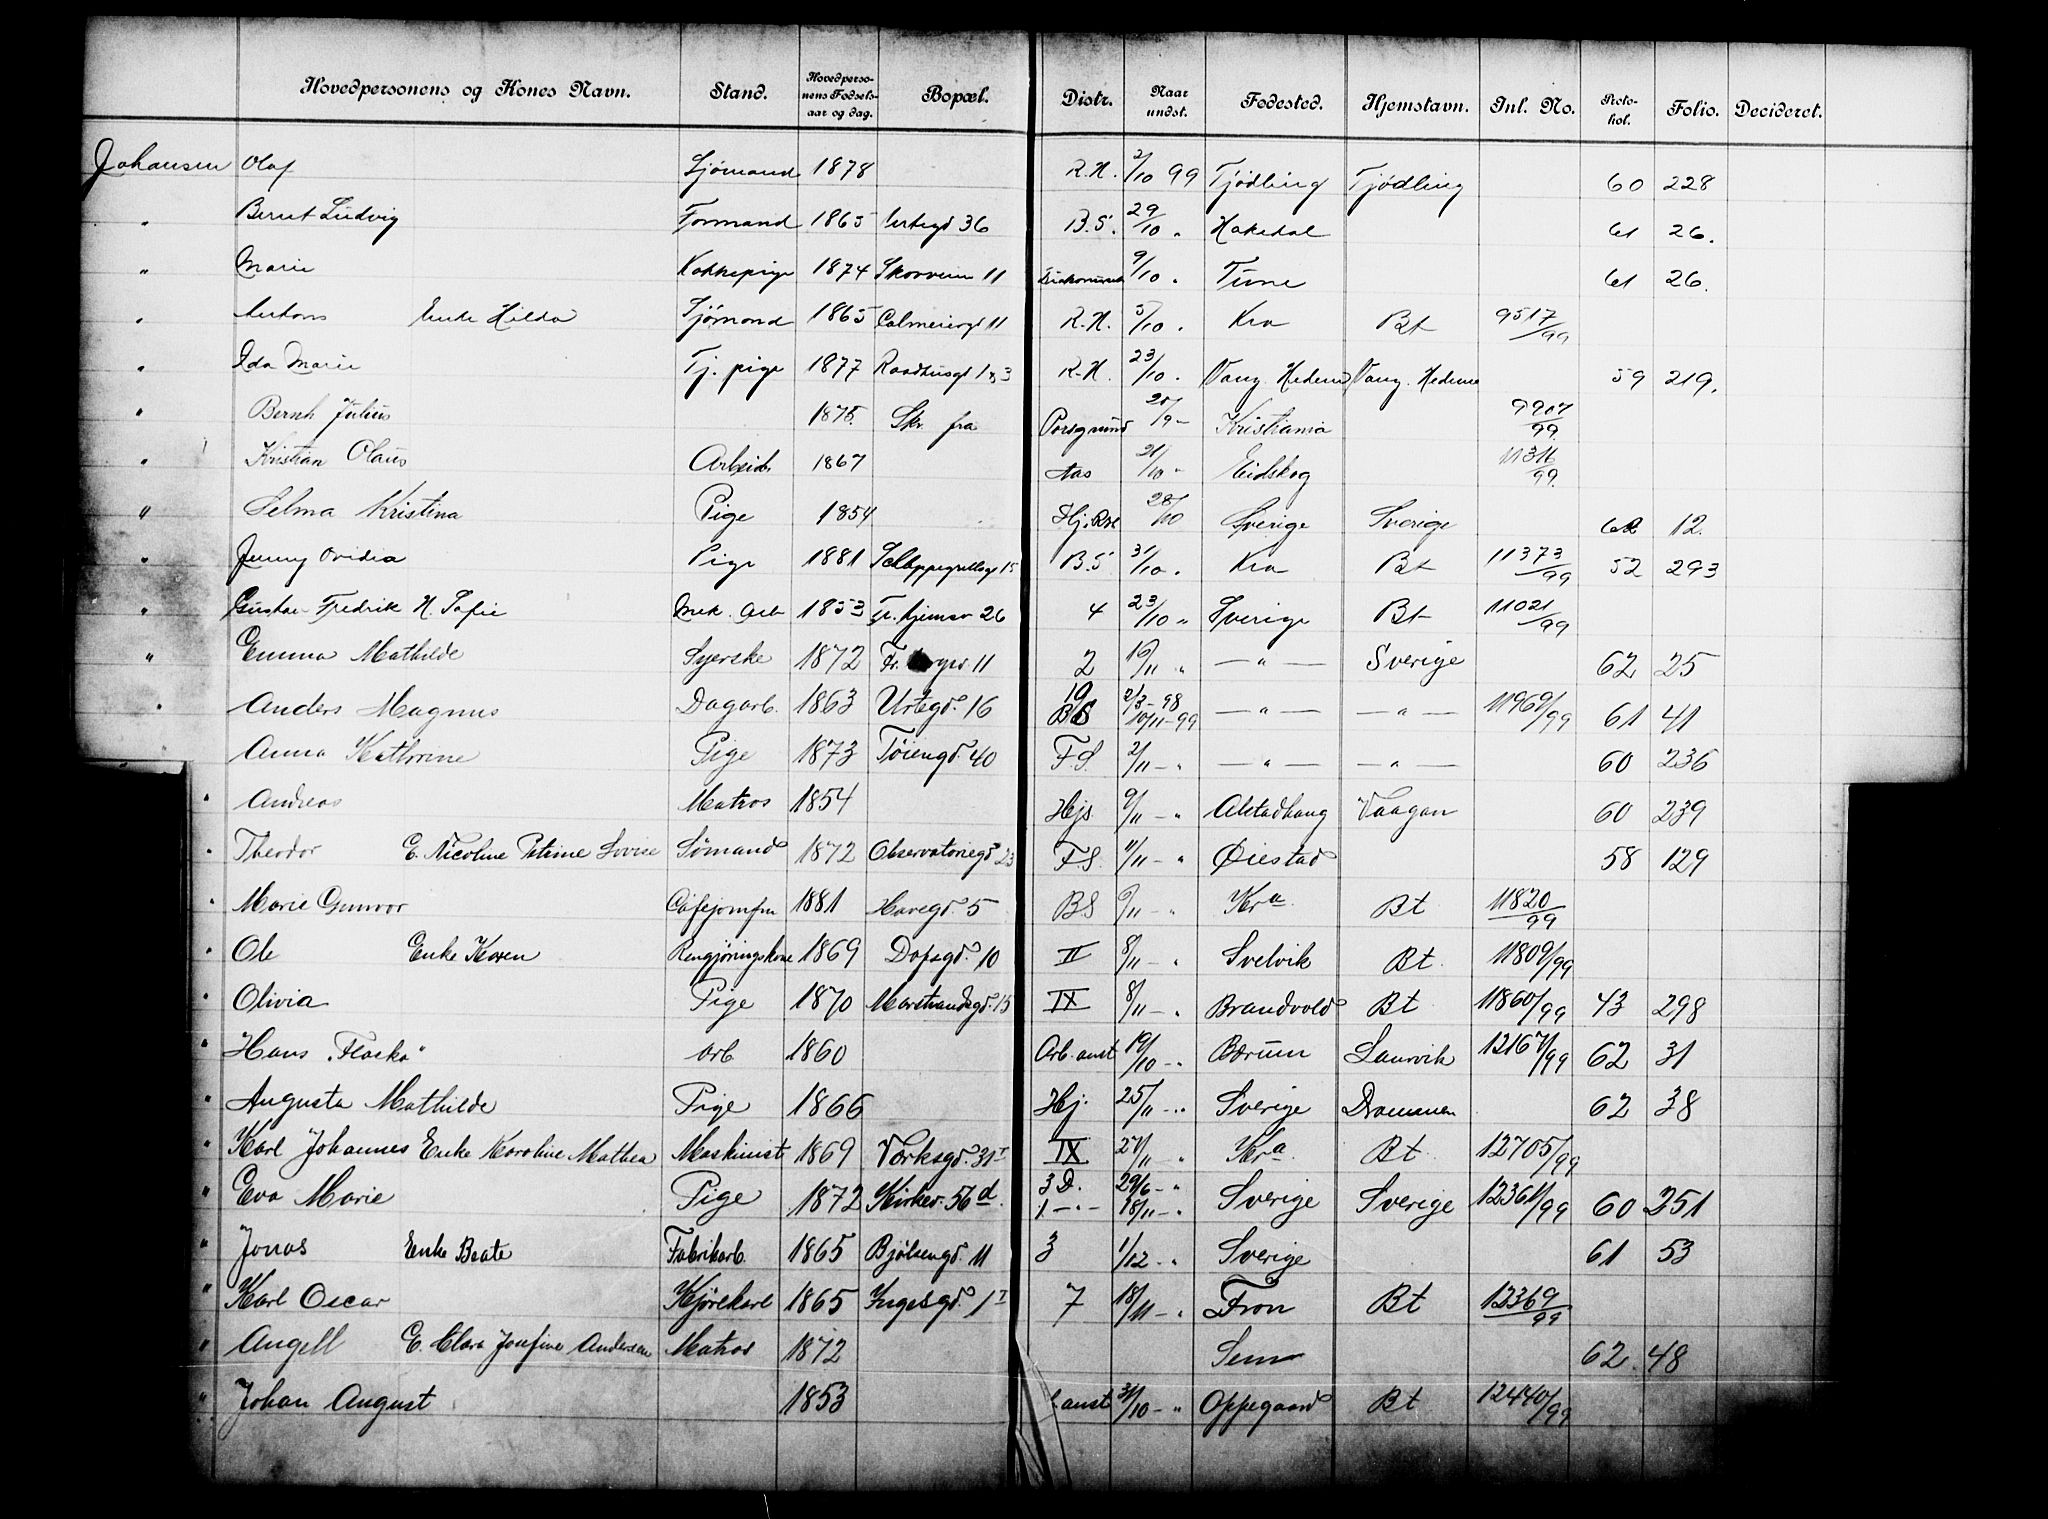 Hovedpersonens og Kones Navn. Stand. Hovedperso-nens Fødsels-aar og dag. Bopæl. Distr. Naar undst. Fødested. Hjemstavn. Inl. No. Proto-kol. Folio. Decideret.
Johansen Olaf Sjømand 1878 R.H. 2/10 99 Tjödling Tjödling 60 228
" Bernt Ludvig Formand 1865 Urtegd 36 B.S. 29/10 " Hakedal 61 26.
" Marie Kokkepige 1874 Skovveien 11 9/10 " Tune 61 26.
" Antons Enke Hilda Sjømand 1865 Calmeiergd 11 R.H. 5/10 " Kra Bt 9517/99
" Ida Marie Tj. pige 1877 Raadhusgd R.H. 23/10 " Vang. Hedem Vang. Hedem 59 219.
" Bernh Julius 1875. Skr. fra Porsgrund Kristiania 9907/99
" Kristian Olaus Arbeid. 1867 Aas 21/10 " Eidskog 11311/99.
" Selma Kristina Pige 1854 28/10 Sverige Sverige 62 12.
" Jenny Ovidia Pige 1881 Schleppegrellsgd 15 B.S. 31/10 " Kra Bt 11373/99 52 293
" Gustav Fredrik H. Sofie Mek. Arb 1853 Tr.hjemsv 26 4 23/10 " Sverige Bt 11021/99
" Emma Mathilde Syerske 1872 11 2 16/11 " — " — Sverige 62 25
" Anders Magnus Dagarb. 1863 Urtegd. 16 10 BS 2/3-98 10/11-99 — " — — " — 11969/99 61 41
Anna Kathrine Pige 1873 Tøiengd. 40 F.S. 2/11 — " — " — — " — 60 236
" Andreas Matros 1854 Hjs. 9/11 — " Alstadhaug Vaagan 60 239
" Theodor E. Nicoline Petrine Lovise Sømand 1872 Observatoriegd 23 F.S. 11/11 — " Øiestad 58 129
" Marie Gunvor Cafejomfru 1881 Havegd. 5 BS 9/11 — " Kra. Bt 11820/99
" Ole Enke Karen Rengjøringskone 1869 Dopsgd. 10 II 8/11 — " Svelvik Bt 11809/99
" Olivia Pige 1870 Marstrandsgd. 15 IX 8/11 — " Brandvold Bt 11860/99 43 298
" Hans "Flaska" Arb 1860 Arb. anst 19/10 — " Bærum Laurvik 12167/99 62 31
" Augusta Mathilde Pige 1866 Hj. 25/11 — " Sverige Drammen 62 38
" Karl Johannes Enke Karoline Mathea Maskinist 1869 Værksgd. 31 I IX 27/11 — " Kra. Bt 12705/99
" Eva Marie Pige 1872 Kirkev. 56 d 3 D. 29/6 — " 1. — " — 18/11 — " Sverige Sverige 12361/99 60 251
" Jonas Enke Beate Fabrikarb. 1865 Bjølsengd. 11 3 1/12 — " Sverige 61 53
" Karl Oscar Kjørekarl 1865 Ingesgd. 1 I 7 18/11 — " Fron Bt 12369/99
" Angell E. Clara Josefine Andersen Matros 1872 Sem 62 48
" Johan August 1853 anst 31/10 — " Oppegaard Bt 12440/99